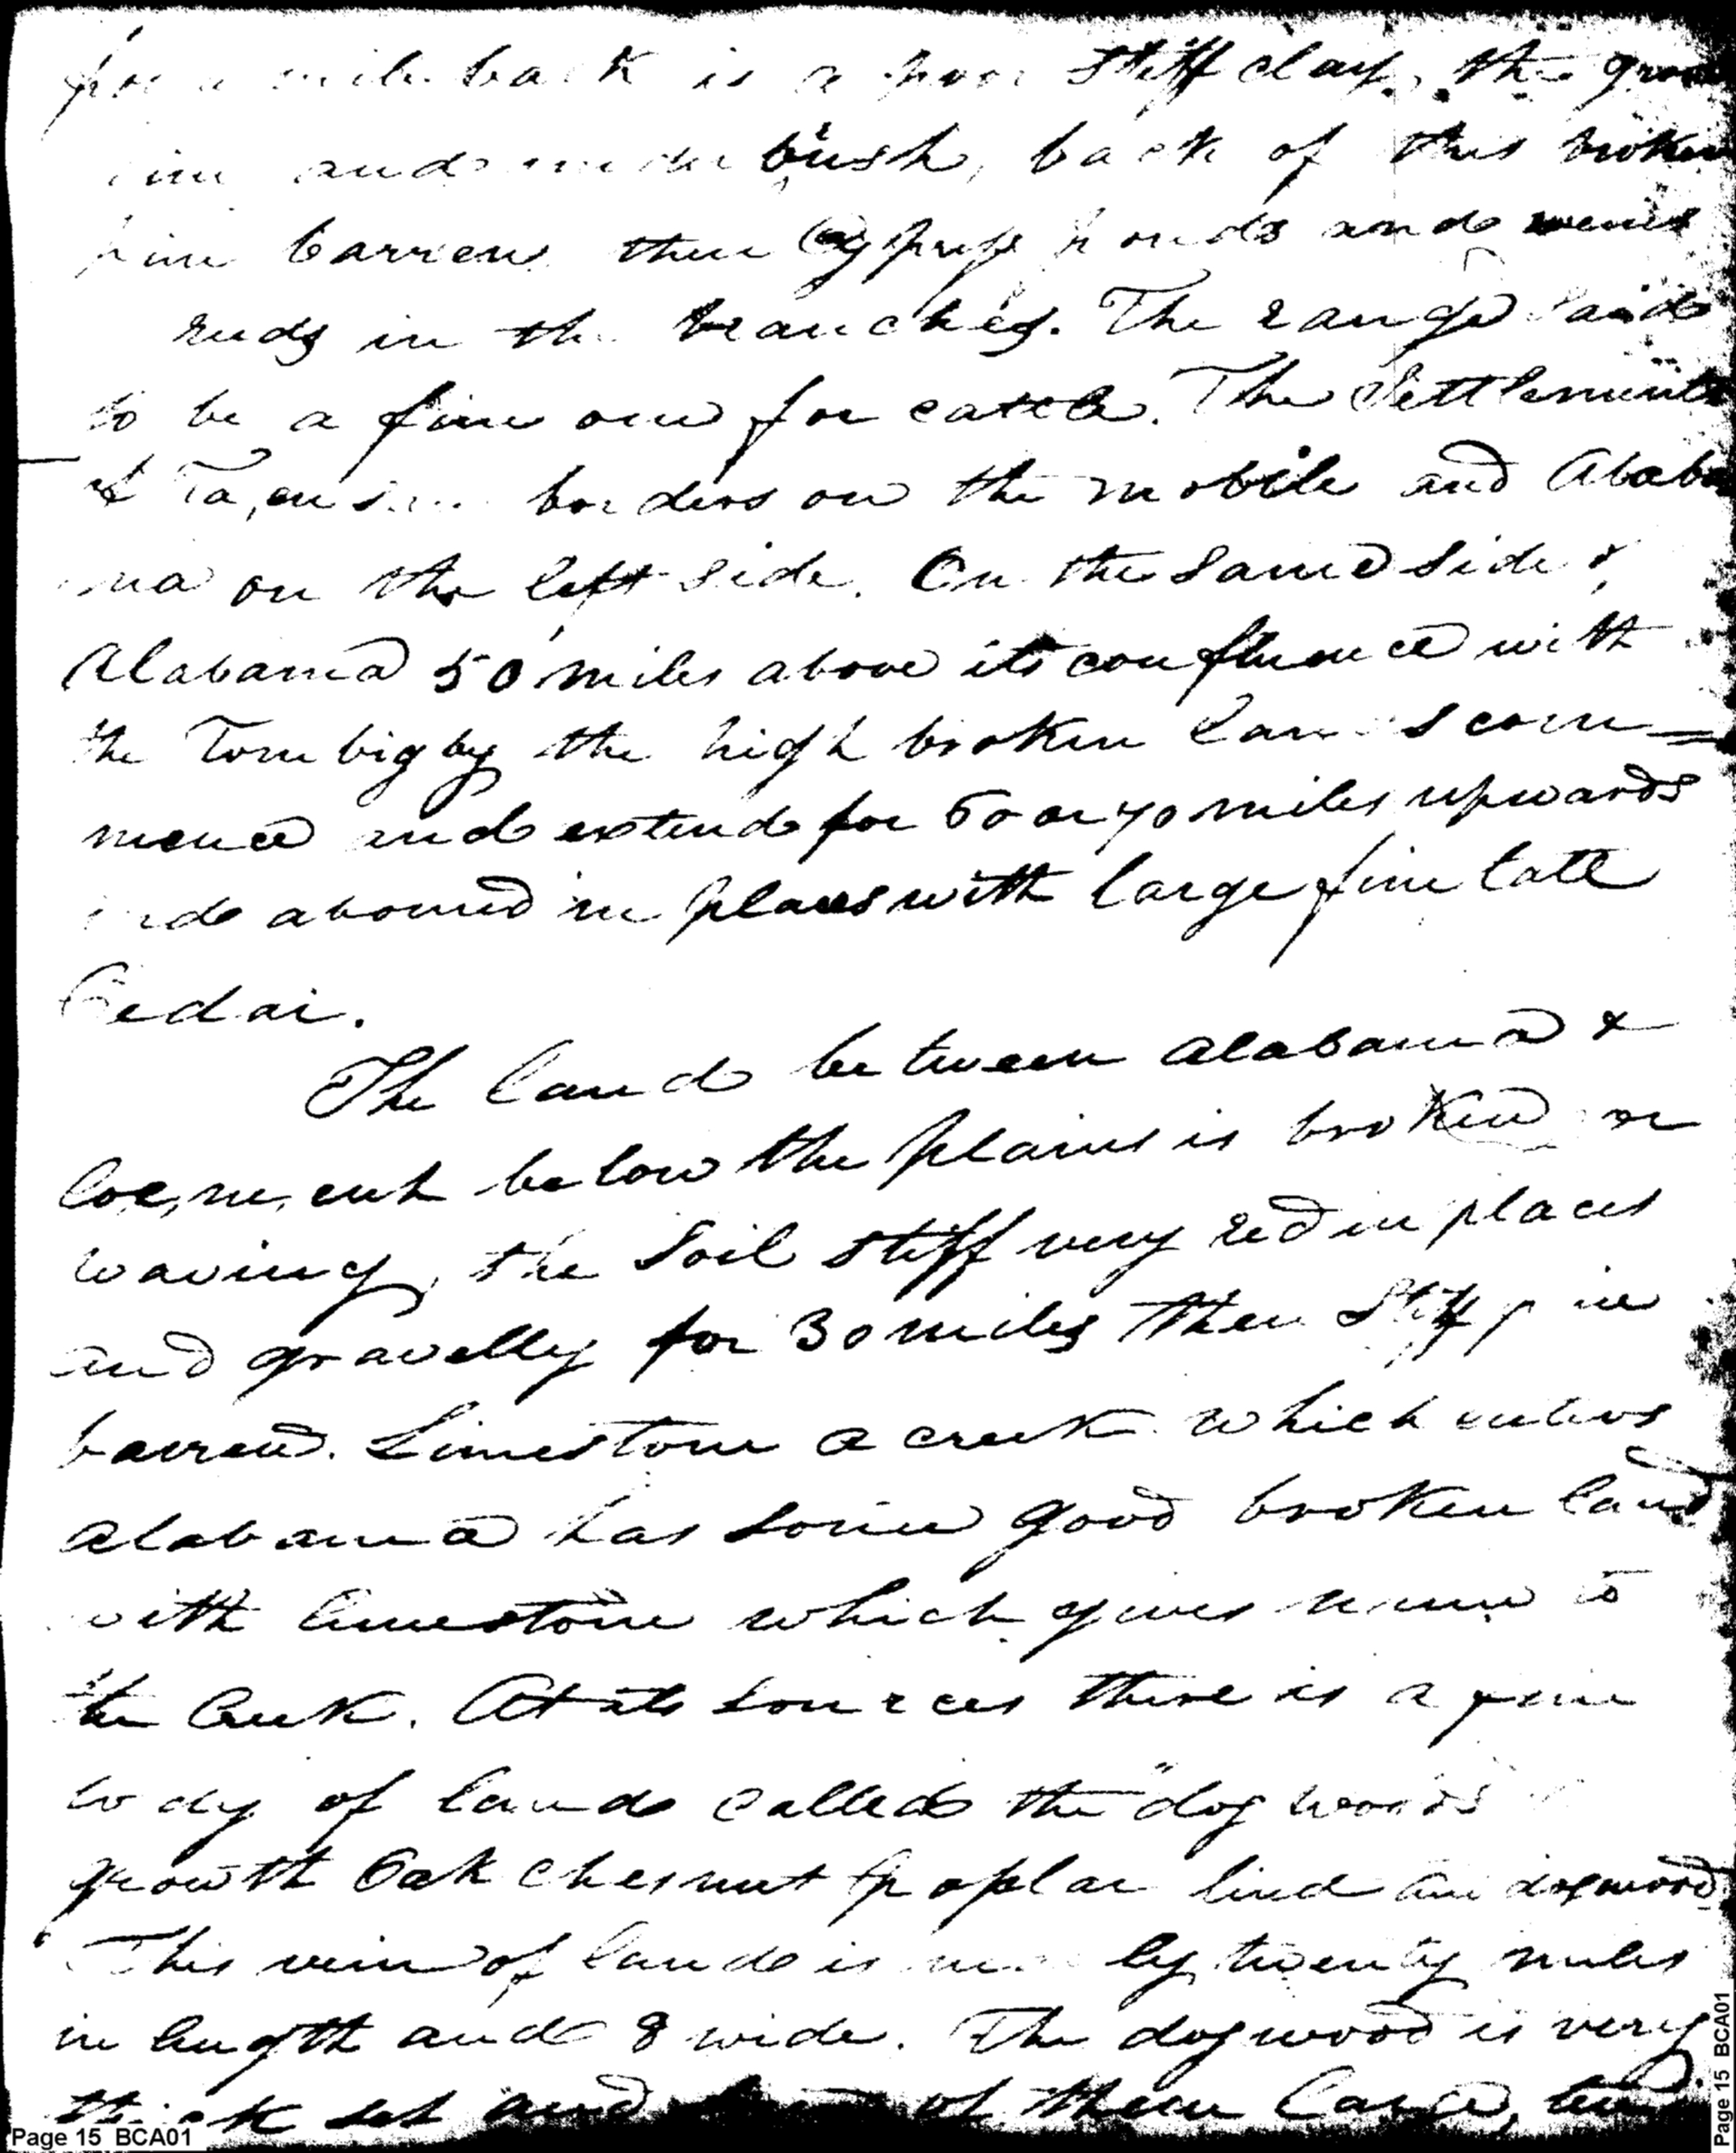 for a mile back is a poor stiff clay, the grow
pine and underbush, back of this broken
pine barren then Cypress ponds and veins
reeds in the branches. The range said
to be a fine one for cattle. The Settlements
of Ta,ensau borders on the mobile and Alaba
ma on the left side. On the same side of
Alabama 50 miles above its confluence with
the Tombigby the high broken lands com=
mence and extend for 60 or 70 miles upwards
and abound in places with large fine tall
Cedar.
The land between Alabama &
Coe,ne,cuh below the plains is broken or
waving, the Soil stiff very red in places
and gravelly for 30 miles then Stiff pine
barren. Limestone a creek which enters
Alabama has some good broken land
with limestone which gives name to
the Creek. At its sources there is a fine
body of land called the "dog woods"
growth Oak chesnut poplar pine and dogwood
This vein of land is nearly twenty miles
in length and 8 wide. The dogwood is very
thick set and of them large, ten
Page 15 BCA01
Page 15 BCA01